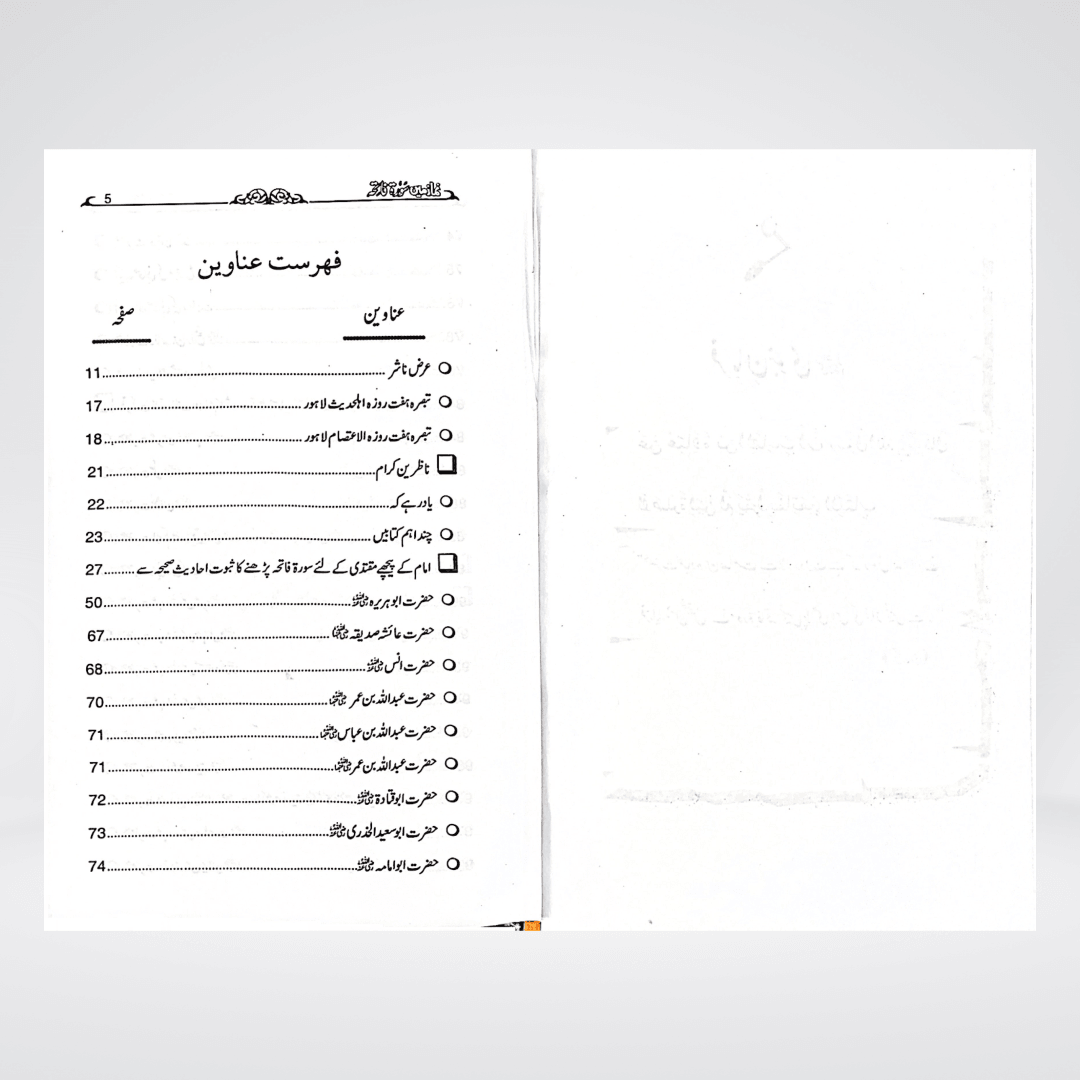 نماز میں سورۃ فاتحہ 5
فہرست عناوین
عناوین صفحہ
عرض ناشر 11
تبصرہ ہفت روزہ اہلحدیث لاہور 17
تبصرہ ہفت روزہ الاعتصام لاہور 18
ناظرین کرام 21
یاد رہے کہ 22
چند اہم کتابیں 23
امام کے پیچھے مقتدی کے لئے سورۃ فاتحہ پڑھنے کا ثبوت احادیث صحیحہ سے 27
حضرت ابو ہریرہ رضی اللہ عنہ 50
حضرت عائشہ صدیقہ رضی اللہ عنہا 67
حضرت انس رضی اللہ عنہ 68
حضرت عبداللہ بن عمر رضی اللہ عنہما 70
حضرت عبداللہ بن عباس رضی اللہ عنہما 71
حضرت عبداللہ بن عمر رضی اللہ عنہما 71
حضرت ابو قتادۃ رضی اللہ عنہ 72
حضرت ابو سعید الخذری رضی اللہ عنہ 73
حضرت ابو امامہ رضی اللہ عنہ 74